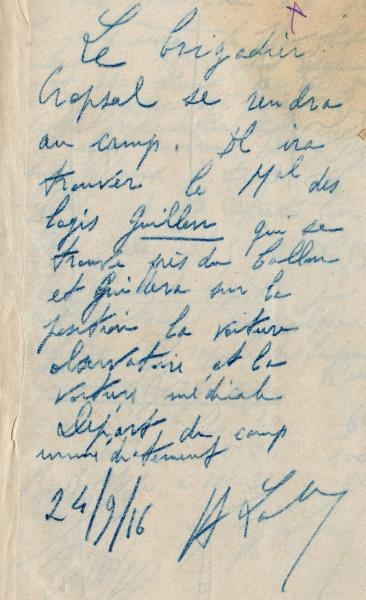 Le brigadier
Cropsal se rendra
au camp. Il ira
trouver le Mal des
logis Guillou qui se
trouve près du ballon
et guidera sur la
position la voiture
observatoire et la
voiture médicale
Départ du camp
immédiatement
24/9/16